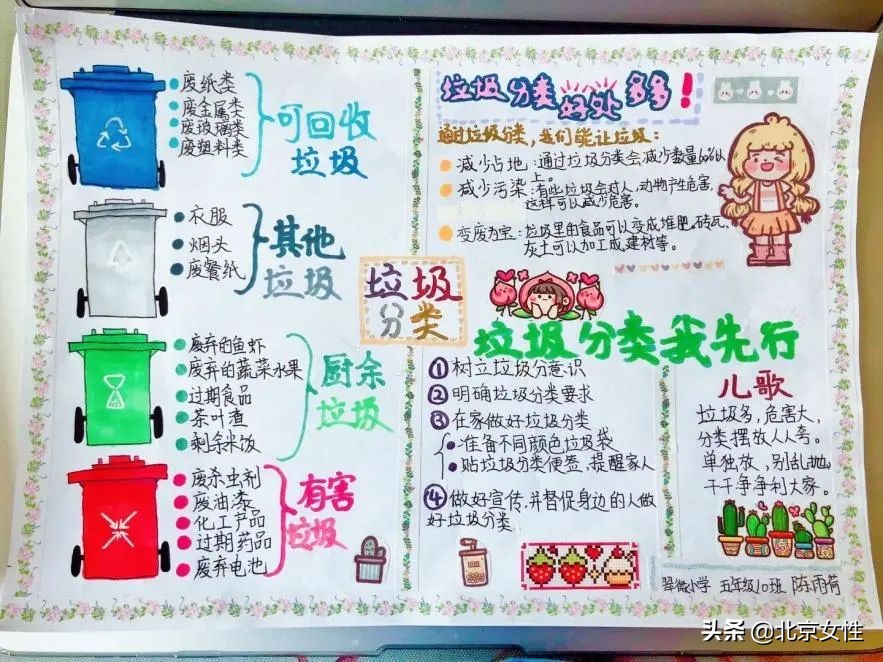 废纸类
废金属类
废玻璃类
废塑料类
可回收
垃圾
衣服
烟头
废餐纸
其他
垃圾
废弃的鱼虾
废弃的蔬菜水果
过期食品
茶叶渣
剩余米饭
厨余
垃圾
废杀虫剂
废油漆
化工产品
过期药品
废弃电池
有害
垃圾
垃圾
分类
垃圾分类好处多多！
通过垃圾分类，我们能让垃圾：
减少占地：通过垃圾分类会减少数量60%以
上。
减少污染：有些垃圾会对人、动物产生危害，
这样可以减少危害。
变废为宝：垃圾里的食品可以变成堆肥，砖瓦、
灰土可以加工成建材等。
垃圾分类我先行
①树立垃圾分意识
②明确垃圾分类要求
③在家做好垃圾分类
准备不同颜色垃圾袋
贴垃圾分类便签，提醒家人
④做好宣传，并督促身边的人做
好垃圾分类
儿歌
垃圾多，危害大，
分类摆放人人夸。
单独放，别乱抛，
干干净净利大家。
翠微小学 五年级10班 陈雨荷
头条 @北京女性